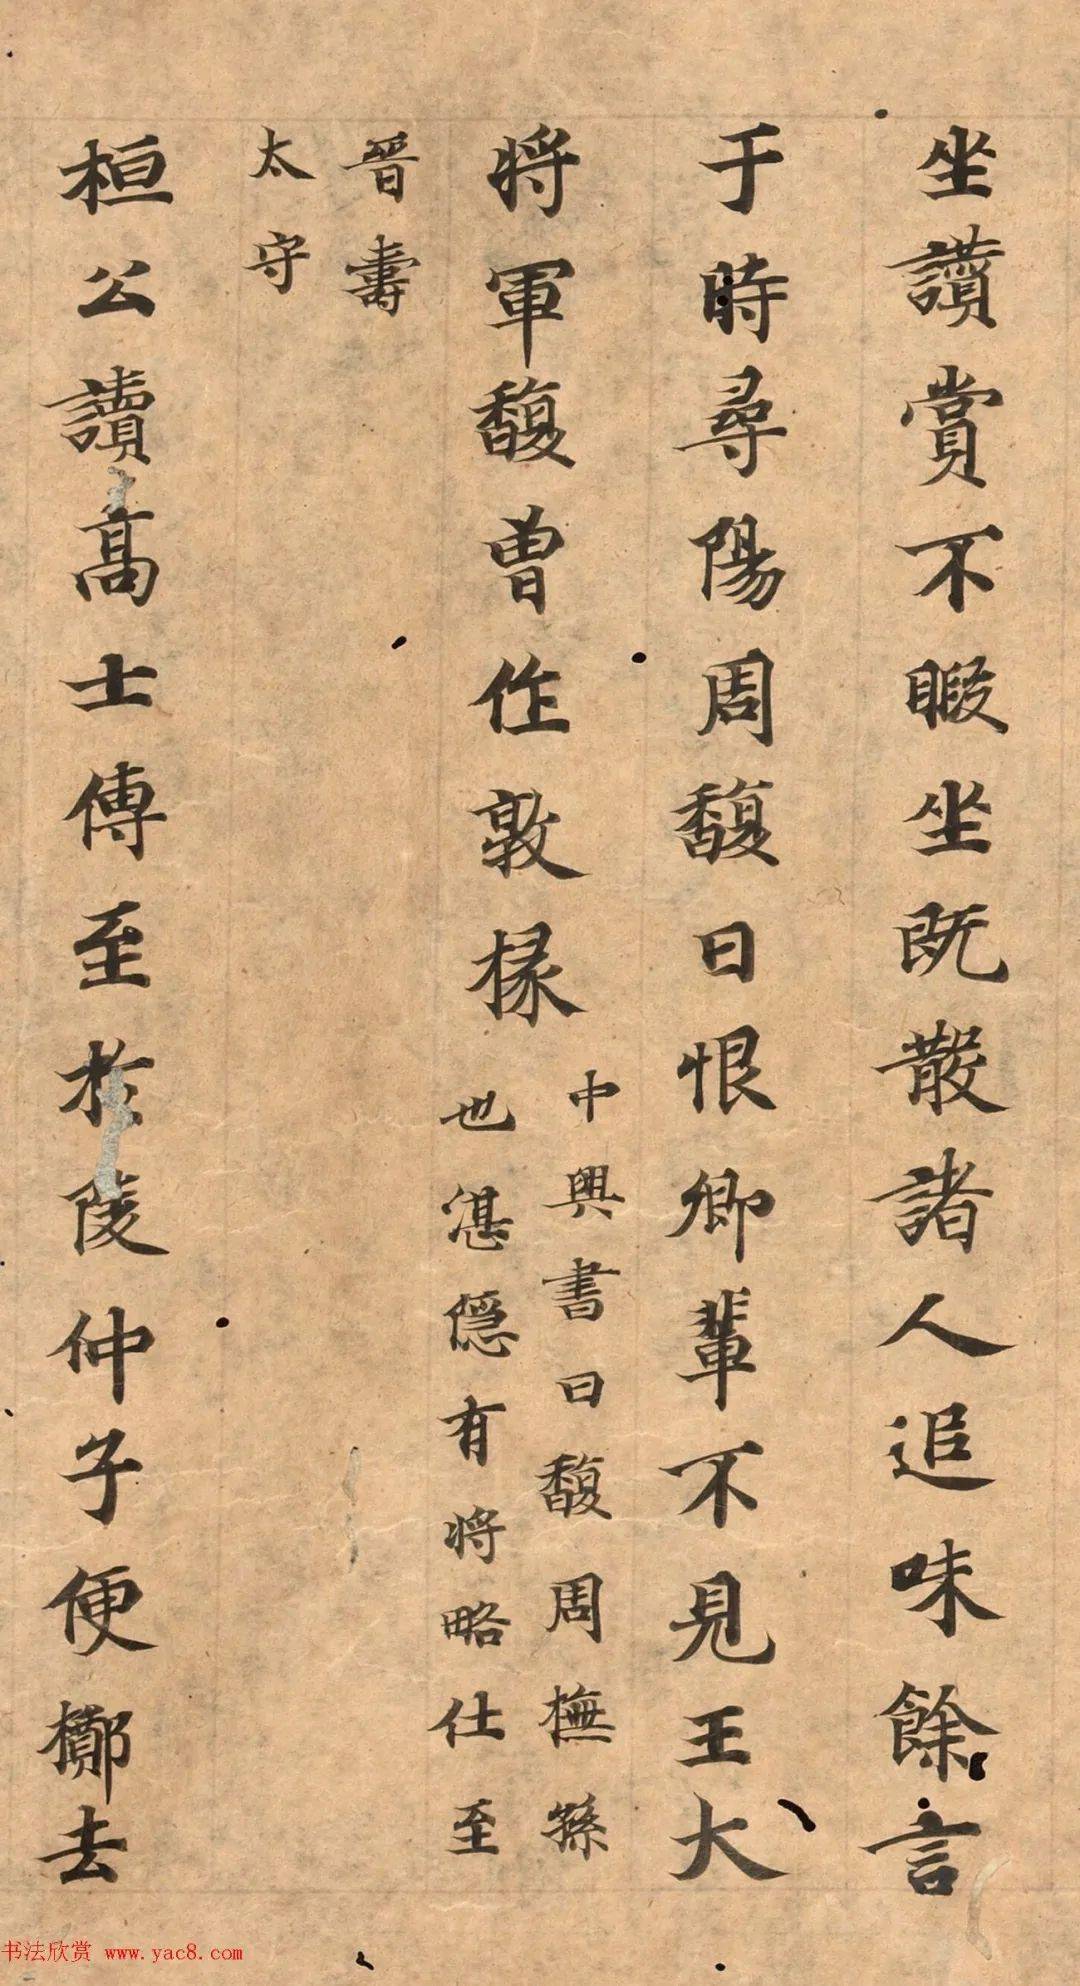 坐讚賞不暇坐既散諸人追味餘言
于時尋陽周馥曰恨卿輩不見王大
將軍馥曾作敦椽
中興書曰馥周橅孫
也湛隱有將略仕至
晉壽
太守
桓公讀高士傳至於陵仲子便擲去
书法欣赏 www.yac8.com